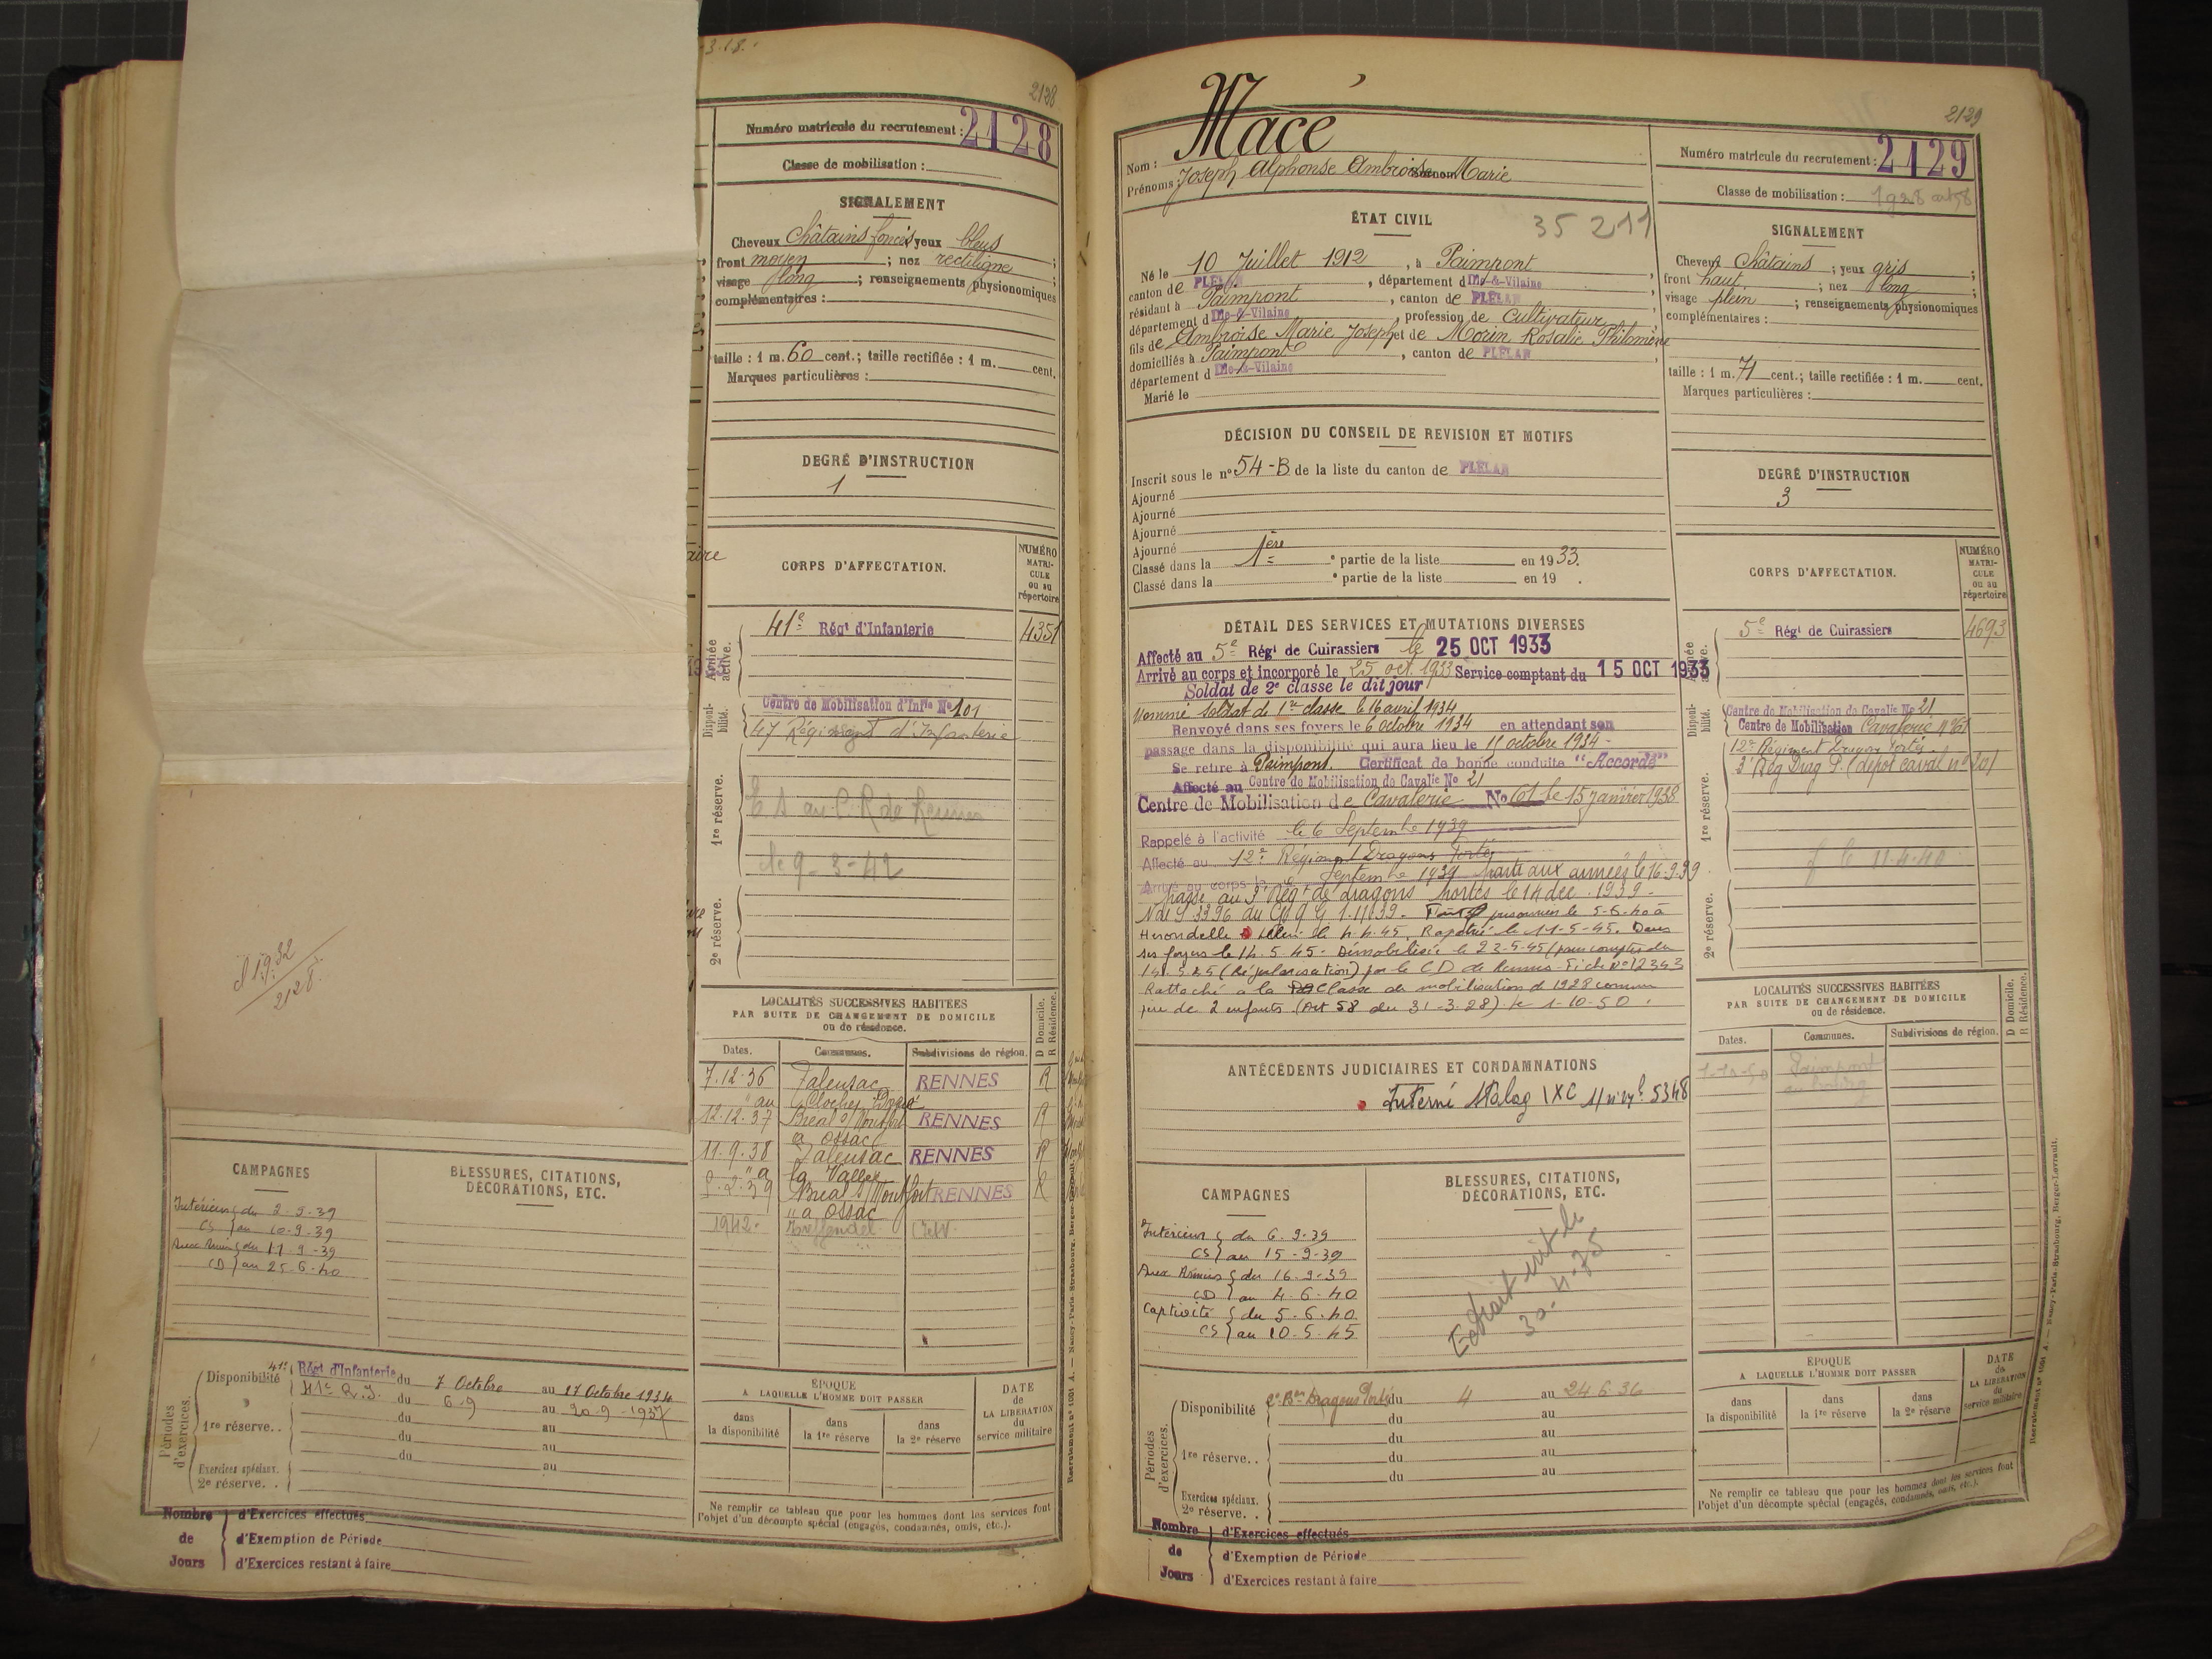 3.18.
2128
Numéro matricule du recrutement : 2128
Classe de mobilisation :
SIGNALEMENT
Cheveux Châtains foncés yeux bleus ;
front moyen ; nez rectiligne ;
visage long ; renseignements physionomiques
complémentaires :
taille : 1 m. 60 cent.; taille rectifiée : 1 m. cent.
Marques particulières :
DEGRÉ D'INSTRUCTION
1
CORPS D'AFFECTATION.
NUMÉRO MATRI- CULE ou au répertoire
Armée active.
41e Régt d'Infanterie
4351
Disponi- bilité.
Centre de Mobilisation d'Infie No 101
47 Régiment d'Infanterie
1re réserve.
le 9-3-42
2e réserve.
cl 1932
2128
LOCALITÉS SUCCESSIVES HABITÉES
PAR SUITE DE CHANGEMENT DE DOMICILE
ou de résidence.
D Domicile. R Résidence.
Dates. Communes. Subdivisions de région.
7.12.36 Talensac RENNES R
" au Clocher
12.12.37 Bréal s/ Montfort RENNES R
à Ossac
11.9.38 Talensac RENNES R
" à la Vallée
2.39 Bréal s/ Montfort RENNES R
" à Ossac
1942. Treffendel I et V.
CAMPAGNES
BLESSURES, CITATIONS,
DÉCORATIONS, ETC.
Intérieur { du 2-9-39
CS } au 10-9-39
Aux Armées { du 11-9-39
CD } au 25-6-40
Périodes d'exercices.
Disponibilité 41e Régt d'Infanterie du 7 Octobre au 27 Octobre 1934
41e R.I. du 6-9 au 20-9-1937
1re réserve. . du au
du au
du au
Exercices spéciaux.
2e réserve. .
ÉPOQUE
A LAQUELLE L'HOMME DOIT PASSER
dans la disponibilité
dans la 1re réserve
dans la 2e réserve
DATE de LA LIBÉRATION du service militaire
Ne remplir ce tableau que pour les hommes dont les services font
l'objet d'un décompte spécial (engagés, condamnés, omis, etc.).
Nombre de Jours
d'Exercices effectués
d'Exemption de Période
d'Exercices restant à faire
2129
Nom : Macé
Prénoms : Joseph Alphonse Ambroise Marie
Numéro matricule du recrutement : 2129
Classe de mobilisation : 1928 art 58
ÉTAT CIVIL
35 211
Né le 10 Juillet 1912, à Paimpont,
canton de PLÉLAN, département d'Ille-&-Vilaine,
résidant à Paimpont, canton de PLÉLAN,
département d'Ille-&-Vilaine, profession de Cultivateur,
fils de Ambroise Marie Joseph et de Morin Rosalie Philomène
domiciliés à Paimpont, canton de PLÉLAN,
département d'Ille-&-Vilaine
Marié le
SIGNALEMENT
Cheveux Châtains ; yeux gris ;
front haut ; nez long ;
visage plein ; renseignements physionomiques
complémentaires :
taille : 1 m. 71 cent.; taille rectifiée : 1 m. cent.
Marques particulières :
DÉCISION DU CONSEIL DE REVISION ET MOTIFS
Inscrit sous le no 54-B de la liste du canton de PLÉLAN
Ajourné
Ajourné
Ajourné
Ajourné
Classé dans la 1ère e partie de la liste en 1933.
Classé dans la e partie de la liste en 19 .
DEGRÉ D'INSTRUCTION
3
DÉTAIL DES SERVICES ET MUTATIONS DIVERSES
Affecté au 5e Régt de Cuirassiers le 25 OCT 1933
Arrivé au corps et incorporé le 25 oct. 1933 Service comptant du 15 OCT 1933
Soldat de 2e classe le dit jour
Nommé soldat de 1re classe le 16 avril 1934
Renvoyé dans ses foyers le 6 octobre 1934 en attendant son
passage dans la disponibilité qui aura lieu le 15 octobre 1934-
Se retire à Paimpont. Certificat de bonne conduite "Accordé"
Affecté au Centre de Mobilisation de Cavalie No 21
Centre de Mobilisation de Cavalerie No 61 le 15 janvier 1938
Rappelé à l'activité le 6 Septembre 1939
Affecté au 12e Régiment Dragons Portés
Arrivé au corps le Septembre 1939 parti aux armées le 16-9-39
passé au 3e Régt de dragons portés le 14 déc. 1939-
prisonnier le 5-6-40 à
le 4.4.45. Rapatrié le 11-5-45. Dans
ses foyers le 14.5.45. Démobilisé le 23-5-45 (pour compter du
14.5.45 (Régularisation) par le C D de Rennes - Fiche No 12343
Rattaché à la Classe de mobilisation de 1928 comme
père de 2 enfants (Art 58 du 31-3-28) le 1-10-50.
CORPS D'AFFECTATION.
NUMÉRO MATRI- CULE ou au répertoire
5e Régt de Cuirassiers
4693
Disponi- bilité.
Centre de Mobilisation de Cavalie No 21
Centre de Mobilisation Cavalerie No 61
1re réserve.
12e Régiment Dragons Portés
3e Rég Drag P. (dépôt caval no 201
le 11-4-40
2e réserve.
ANTÉCÉDENTS JUDICIAIRES ET CONDAMNATIONS
Interné Stalag IXC 5348
LOCALITÉS SUCCESSIVES HABITÉES
PAR SUITE DE CHANGEMENT DE DOMICILE
ou de résidence.
D Domicile. R Résidence.
Dates. Communes. Subdivisions de région.
1-10-50 Paimpont
au bourg
CAMPAGNES
BLESSURES, CITATIONS,
DÉCORATIONS, ETC.
Intérieur { du 6-9-39
CS } au 15-9-39
Aux Armées { du 16-9-39
CD } au 4-6-40
Captivité { du 5-6-40
CS } au 10-5-45
Périodes d'exercices.
Disponibilité Dragons Portés du 4 au 24.6.36
du au
1re réserve. . du au
du au
du au
Exercices spéciaux.
2e réserve. .
ÉPOQUE
A LAQUELLE L'HOMME DOIT PASSER
dans la disponibilité
dans la 1re réserve
dans la 2e réserve
DATE de LA LIBÉRATION du service militaire
Ne remplir ce tableau que pour les hommes dont les services font
l'objet d'un décompte spécial (engagés, condamnés, omis, etc.).
Nombre de Jours
d'Exercices effectués
d'Exemption de Période
d'Exercices restant à faire